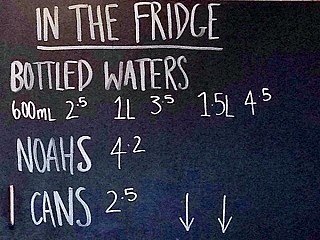 IN THE FRIDGE
BOTTLED WATERS
600mL 2.5 1L 3.5 1.5L 4.5
NOAHS 4.2
CANS 2.5 ↓ ↓